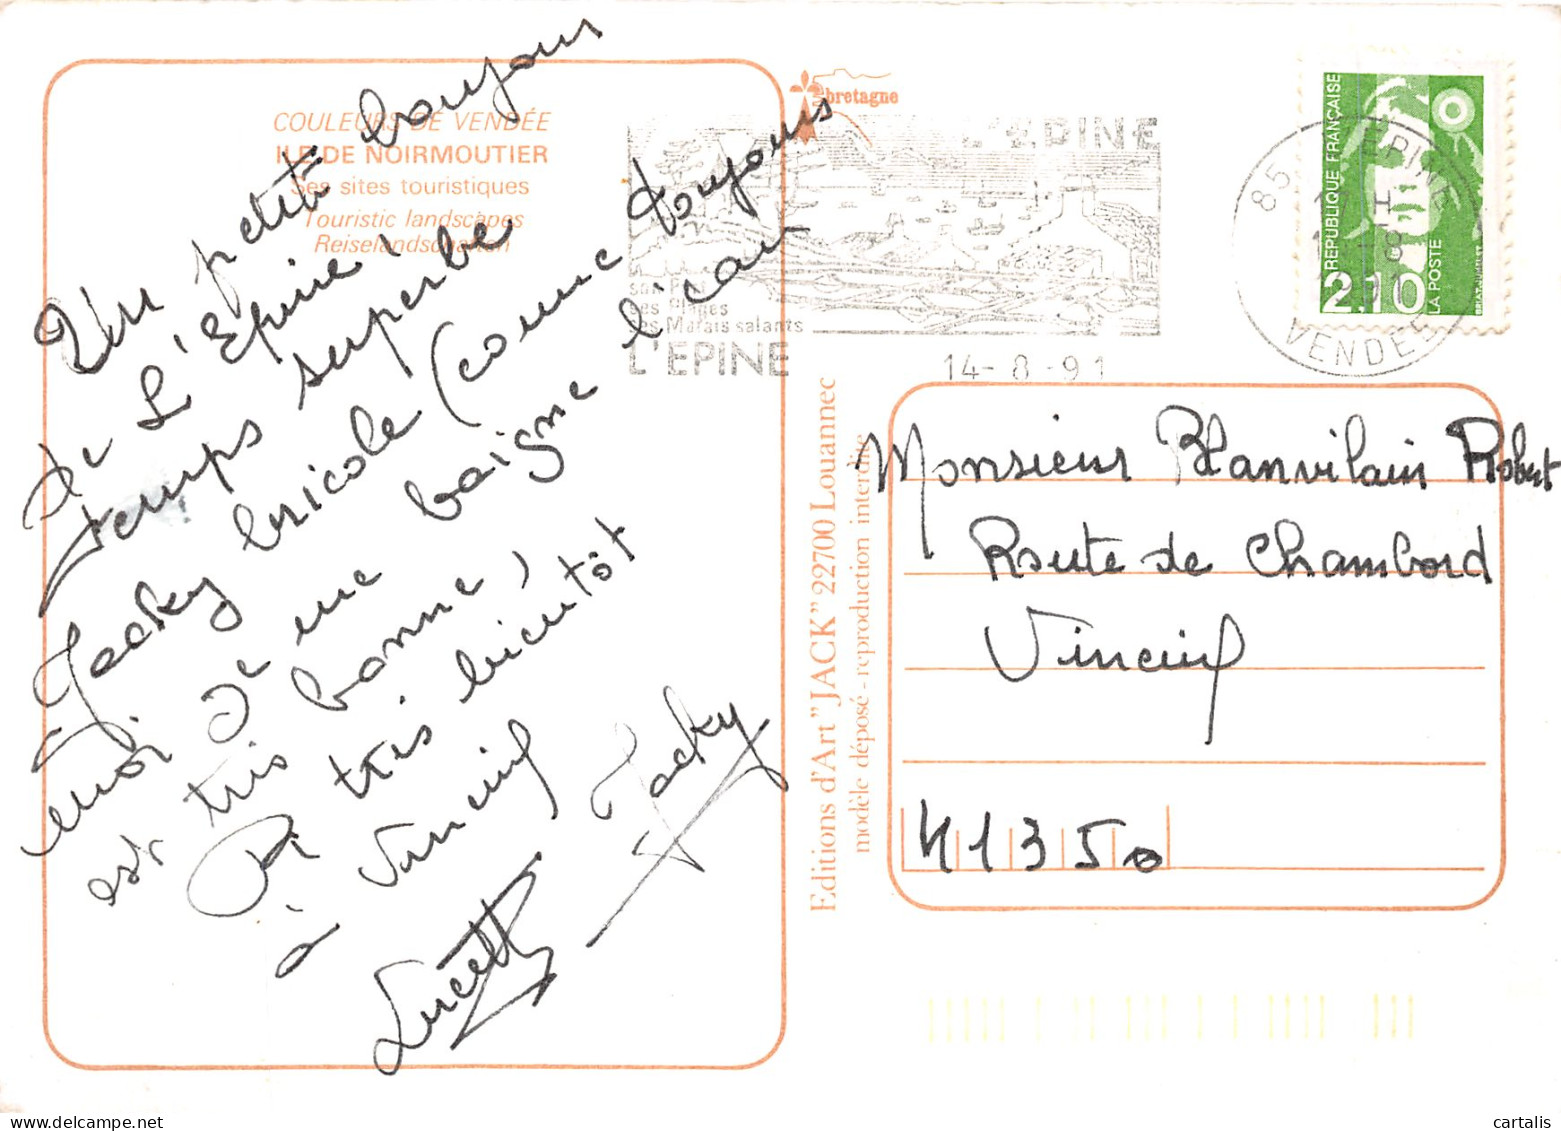 COULEURS DE VENDÉE
ILE DE NOIRMOUTIER
Ses sites touristiques
Touristic landscapes
Reiselandschaften
Un petit bonjour
de L'Epine,
temps superbe
Jacky bricole (comme toujours
moi je me baigne l'eau
est très bonne)
A très bientôt
à Vineuil
Jacky
Lucette
bretagne
L'EPINE
ses Plages
ses Marais salants
L'EPINE
14-8-91
85 L'EPINE
VENDEE
REPUBLIQUE FRANÇAISE
2,10
LA POSTE
BRIAT-JUMELET
Editions d'Art "JACK" 22700 Louannec
modèle déposé - reproduction interdite
Monsieur Blanvilain Robert
Route de Chambord
Vineuil
41350
cartalis
delcampe.net